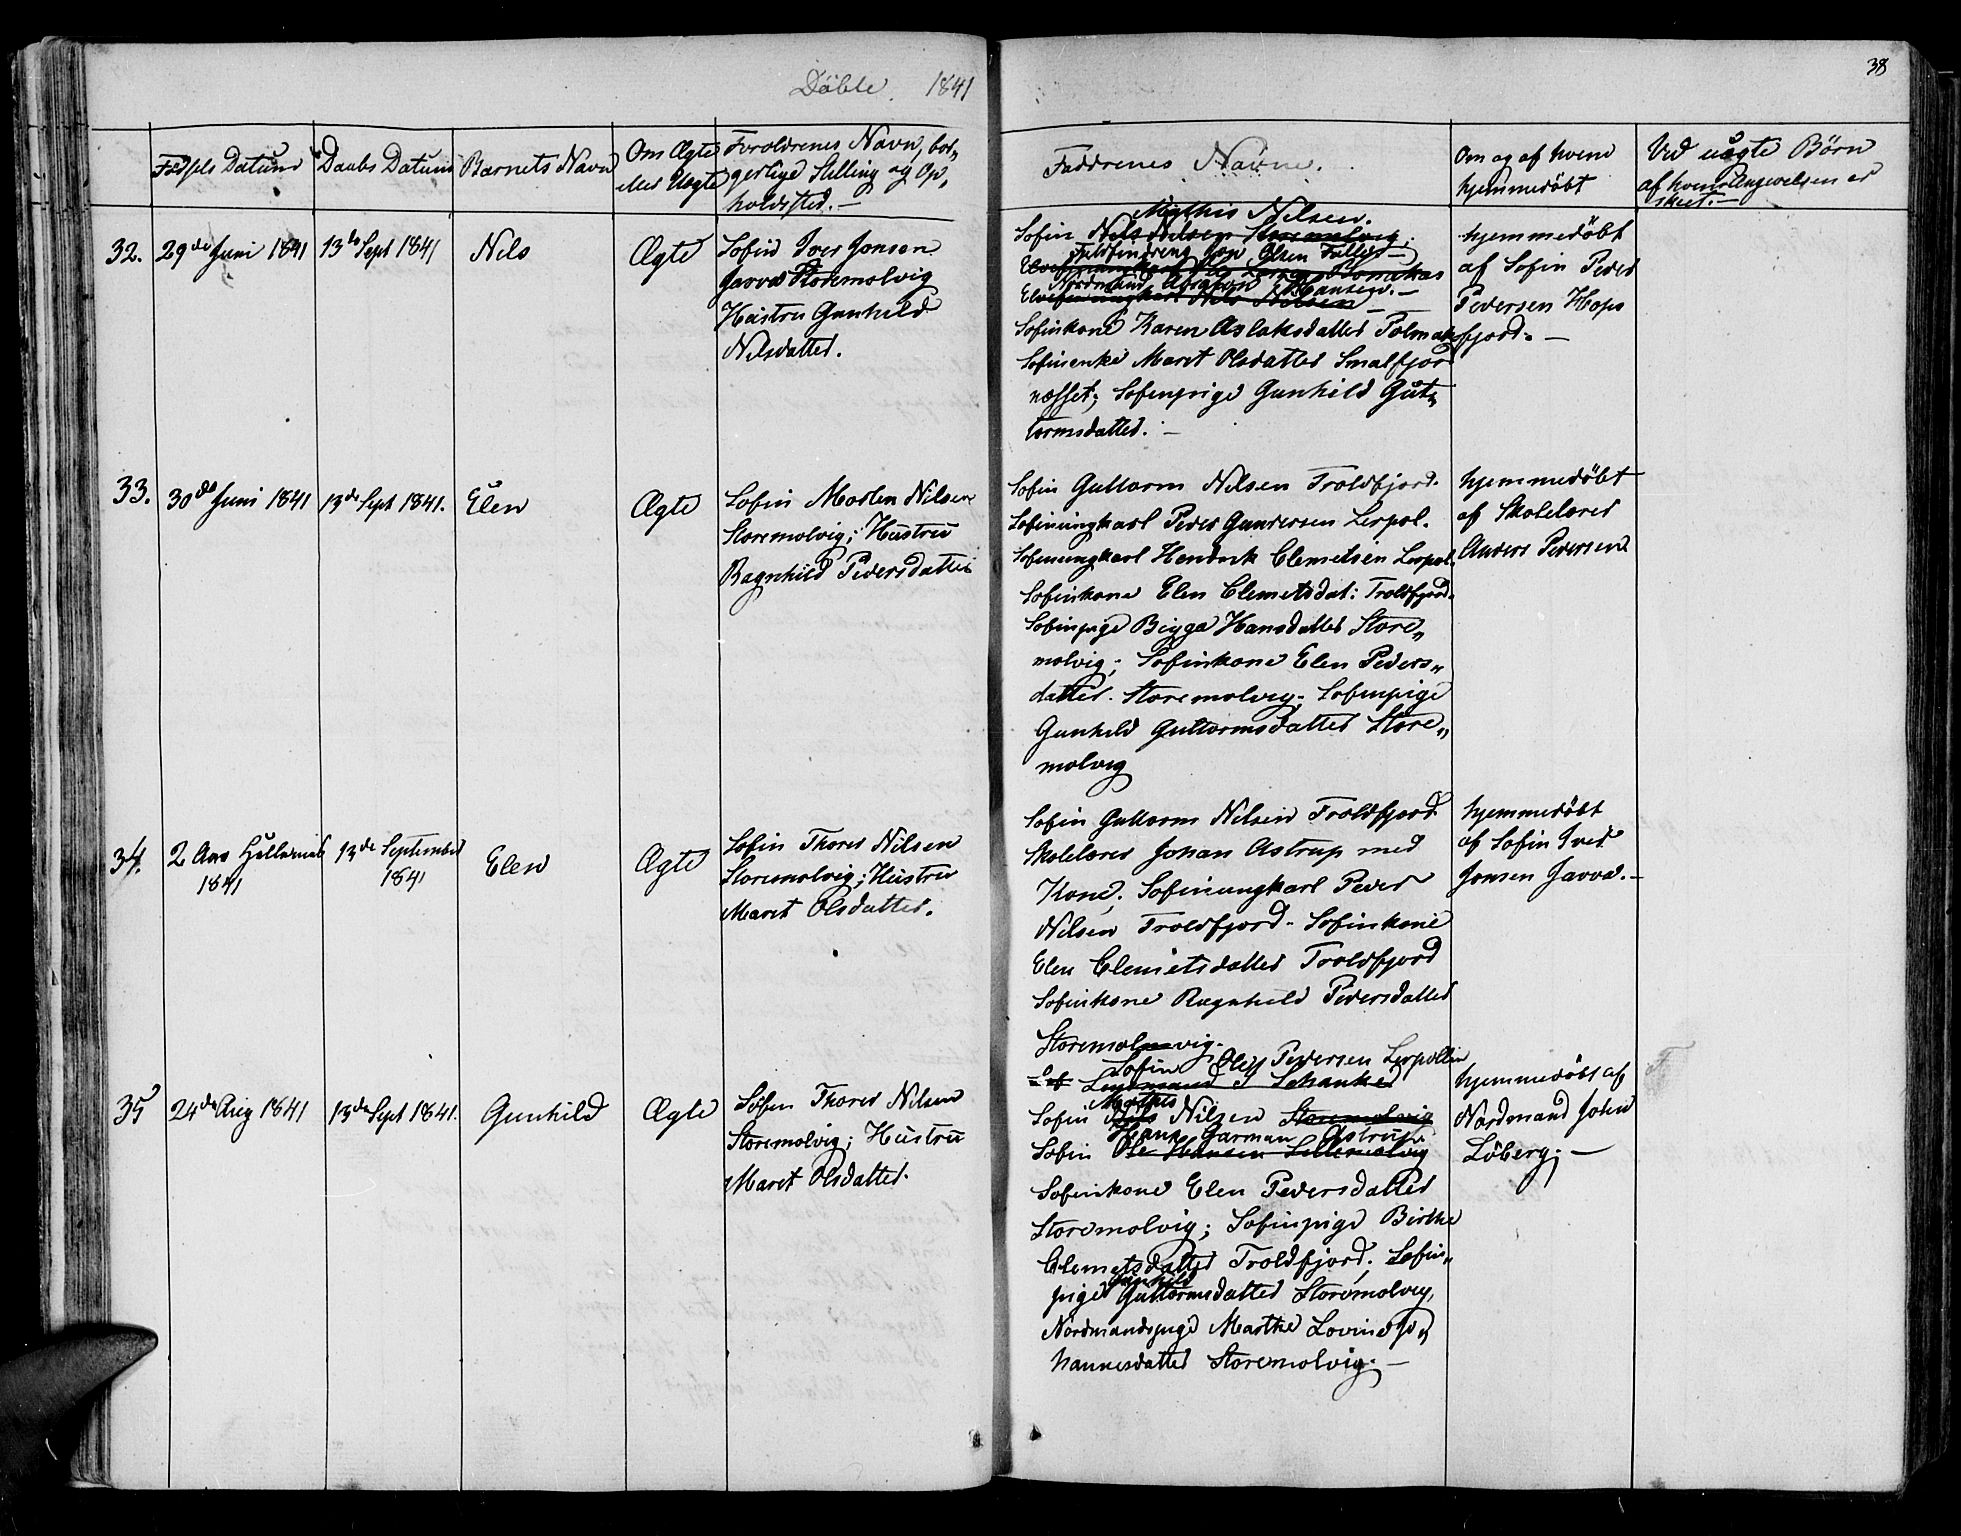 Döbte 1841
38
Fødsels Datum
Daabs Datum
Barnets Navn
Om Ægte
eller Uægte
Forældrenes Navn, bor„
gerlige Stilling og Op„
holdssted.—
Faddrenes Navne.
Om og af hvem
hjemmedöbt
Ved uægte Börn
af hvem Angivelsen er
skeet.—
32.
29de Juni 1841
13de Sept 1841
Nils
Ægte
Söfin Iver Jonsen
Javva Storemolvig
Hustru Gunhild
Nilsdatter.
Mathis Nilsen.
Söfin Nils Nilsen Storemolvig.
Nordmand Abraham Hansen.—
Söfinkone Karen Aslaksdatter Polmak
Söfinenke Maret Olsdatter Smalfjor
næsset; Söfinpige Gunhild Gut„
tormsdatter.—
hjemmedöbt
af Söfin Peder
Pedersen Hops
fjord.—
33.
30de Juni 1841
13de Sept 1841.
Elen
Ægte
Söfin Morten Nilsen
Storemolvig; Hustru
Ragnhild Pedersdatter
Söfin Guttorm Nilsen Troldfjord.
Söfinungkarl Peder Gundersen Lerpol.
Söfinungkarl Hendrik Clemetsen Lerpol.
Söfinkone Elen Clemetsdat: Troldfjord.
Söfinpige Bigga Hansdatter Store„
molvig; Söfinkone Elen Peders„
datter Storemolvig. Söfinpige
Gunhild Guttormsdatter Store„
molvig
hjemmedöbt
af Skolelærer
Anders Pedersen
34.
2 Aar
1841
13de September
1841
Elen
Ægte
Söfin Thores Nilsen
Storemolvig; Hustru
Maret Olsdatter.
Söfin Guttorm Nilsen Troldfjord
Skolelærer Johan Astrup med
Kone; Söfinungkarl Peder
Nilsen Troldfjord. Söfinkone
Elen Clemetsdatter Troldfjord
Söfinkone Ragnhild Pedersdatter
Storemolvig.
hjemmedöbt
af Söfin Iver
Jonsen Javva.—
35
24de Aug 1841
13de Sept 1841.
Gunhild
Ægte
Söfin Thores Nilsen
Storemolvig; Hustru
Maret Olsdatter.
Söfin Ole Pedersen Lerpollen
Lensmand Schanke
Mathis
Söfin Nils Nilsen Storemolvig
Hans Garman Astrup.
Söfin Ole Hansen Lillemolvig
Söfinkone Elen Pedersdatter
Storemolvig; Söfinpige Birthe
Clemetsdatter Troldfjord; Söfin„
Gunhild
pige Guttormsdatter Storemolvig,
Nordmandspige Marthe Lovine Jo„
hannesdatter Storemolvig.—
hjemmedöbt af
Nordmand John
Löberg.—